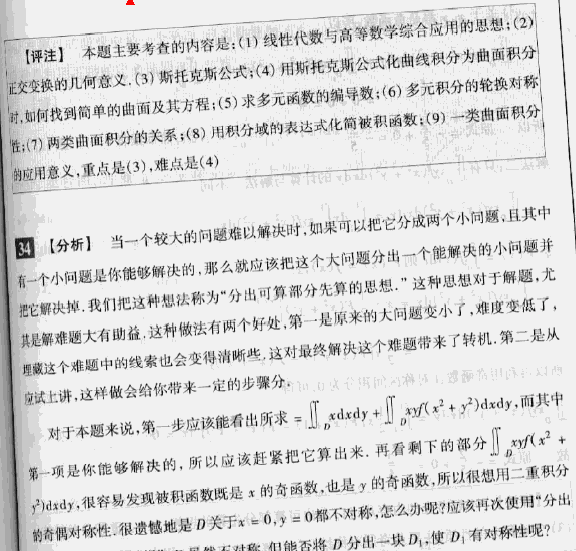 【评注】 本题主要考查的内容是:(1) 线性代数与高等数学综合应用的思想;(2)
正交变换的几何意义.(3) 斯托克斯公式;(4) 用斯托克斯公式化曲线积分为曲面积分
时,如何找到简单的曲面及其方程;(5) 求多元函数的编导数;(6) 多元积分的轮换对称
性;(7) 两类曲面积分的关系;(8) 用积分域的表达式化简被积函数;(9) 一类曲面积分
的应用意义,重点是(3),难点是(4)
34 【分析】 当一个较大的问题难以解决时,如果可以把它分成两个小问题,且其中
有一个小问题是你能够解决的,那么就应该把这个大问题分出一个能解决的小问题并
把它解决掉.我们把这种想法称为“分出可算部分先算的思想.”这种思想对于解题,尤
其是解难题大有助益.这种做法有两个好处,第一是原来的大问题变小了,难度变低了,
埋藏这个难题中的线索也会变得清晰些.这对最终解决这个难题带来了转机.第二是从
应试上讲,这样做会给你带来一定的步骤分.
对于本题来说,第一步应该能看出所求 = ∬_D xdxdy + ∬_D xyf(x² + y²)dxdy,而其中
第一项是你能够解决的,所以应该赶紧把它算出来.再看剩下的部分∬_D xyf(x² +
y²)dxdy,很容易发现被积函数既是 x 的奇函数,也是 y 的奇函数,所以很想用二重积分
的奇偶对称性.很遗憾地是 D 关于x = 0,y = 0都不对称,怎么办呢?应该再次使用“分出
虽然不对称,但能否将 D 分出一块 D₁,使 D₁ 有对称性呢?